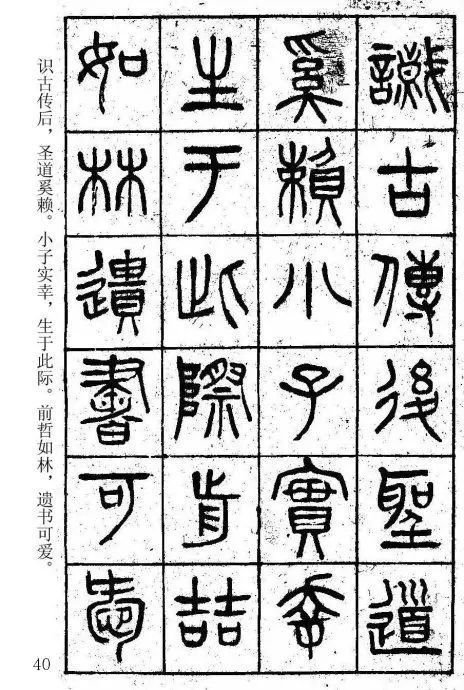 識古傳後聖道
奚賴小子實幸
生于此際歬喆
如林遺書可㤅
识古传后，圣道奚赖。小子实幸，生于此际。前哲如林，遗书可爱。
40